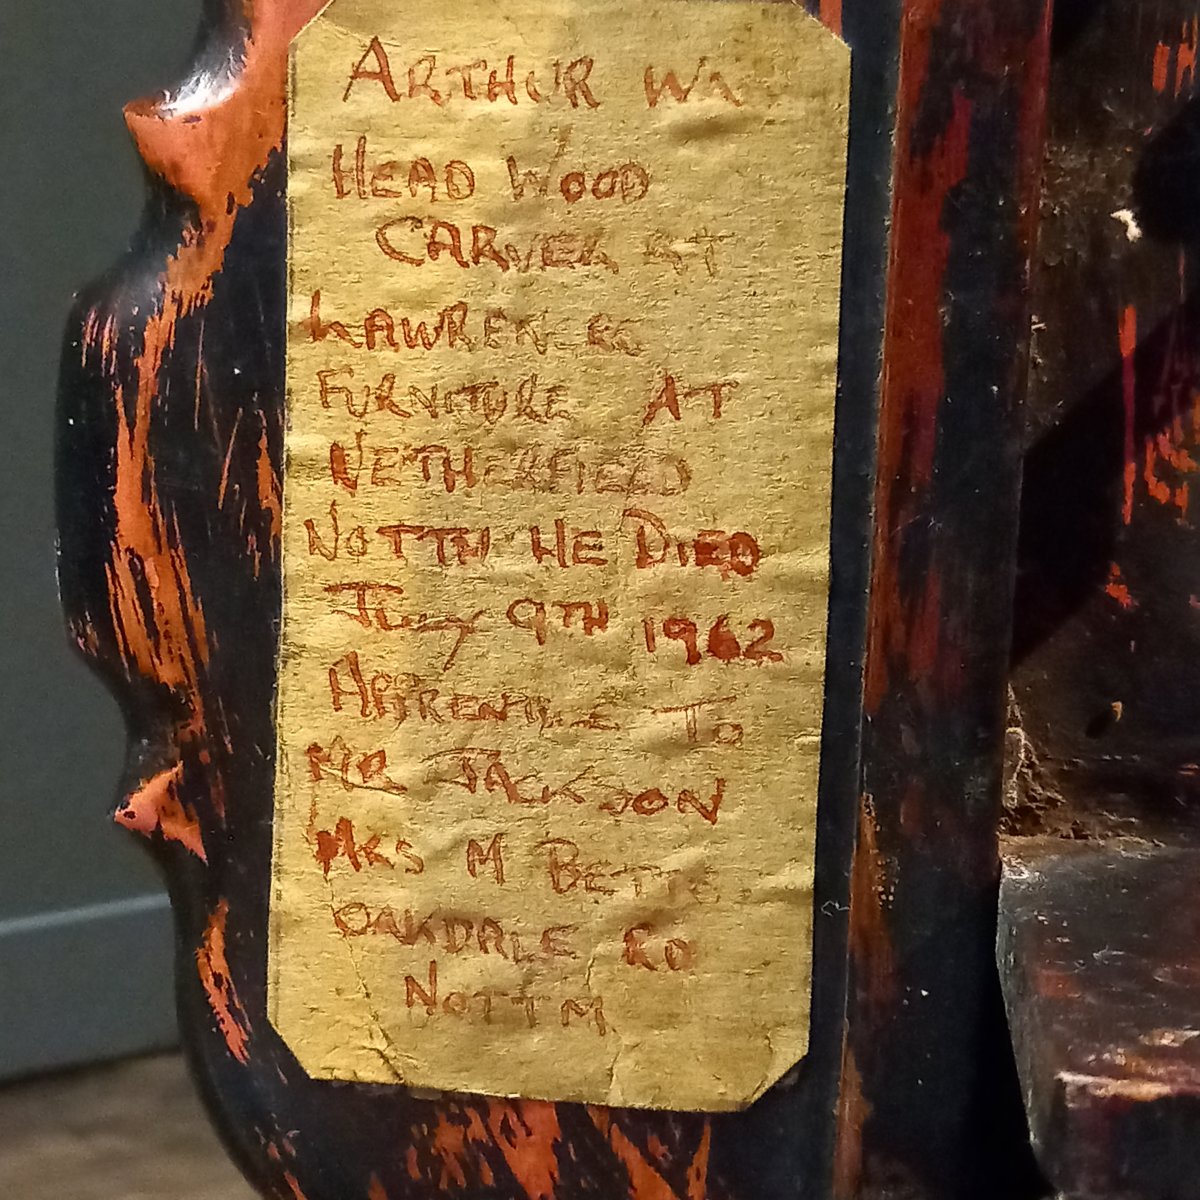 ARTHUR
HEAD WOOD
CARVER AT
LAWRENCE
FURNITURE AT
NETHERFIELD
NOTTM HE DIED
JULY 9TH 1962
APPRENTICE TO
MR JACKSON
MRS M BETTS
OAKDALE RD
NOTTM